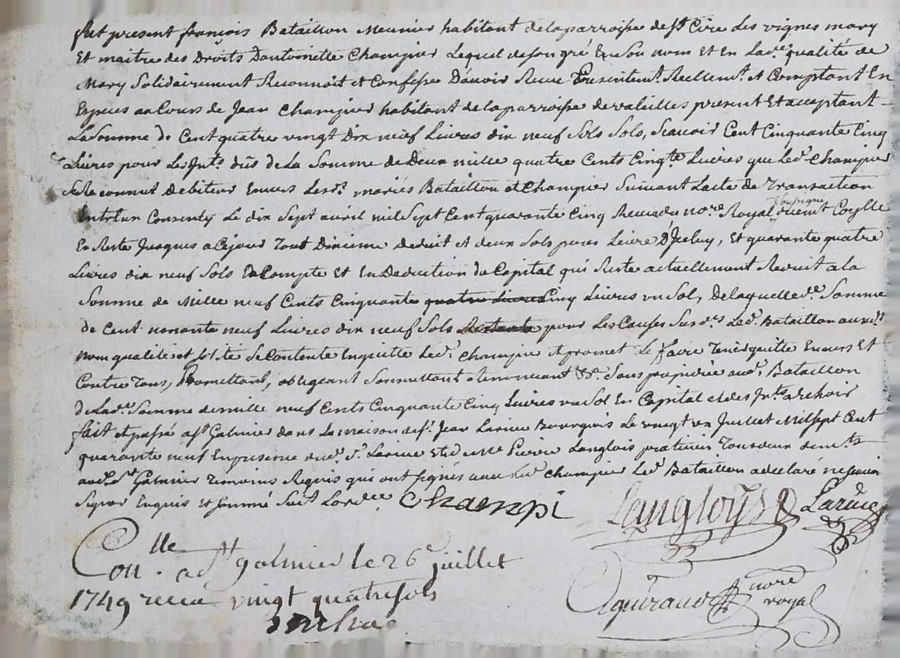 fut present françois Bataillon Meunier habitant de la parroisse de st Cire Les vignes mary
Et maitre des Droits Dantoinette Champier Lequel de son gré En Son nom et En lad.e qualité de
Mary Solidairement Reconnoit et Confesse Davoir Receu Presentem.t Reellem.t et Comptant En
Especes au Cours de Jean Champier habitant de la parroisse de valeilles present Et acceptant
La Somme de Cent quatre vingt Dix neuf Livres dix neuf Sols Solo, Scavoir Cent Cinquante Cinq
Livres pour Les Int.s dûs de La Somme de Deux mille quatre Cents Cinq.te Livres que Led.t Champier
Se Reconnut Debiteur Envers Lesd.s mariés Bataillon et Champier Suivant Lacte de Transaction
Entr'Eux Consenty Le dix Sept avril mil Sept Cent quarante Cinq Receu du no.re Royal
En Reste Jusques a Cejour Tout Dixieme deduit et deux Sols pour Livre D'Iceluy, Et quarante quatre
Livres dix neuf Sols En Compte Et En Deduction du Capital qui Reste actuellement Reduit a la
Somme de Mille neuf Cents Cinquante quatre Livres Cinq Livres un Sol, De laquelle d.e Somme
de Cent nonante neuf Livres dix neuf Sols Restante pour Les Causes Susd.es Led.t Bataillon auxd.t
nom qualité et Se Contente Enquitte Led.t Champier et promet Le faire Tenir quitte Envers Et
Contre Tous, Promettant, obligeant Soumettant et Renoncant &c. Sans prejudice aud.t Bataillon
De Lad.e Somme de mille neuf Cents Cinquante Cinq Livres un Sol En Capital et des Int.s a Echoir
fait et passé a s.t Galmier dans La maison de s.r Jean Larüe Bourgeois Le vingt un Juillet Mil sept Cent
quarante neuf En presence dud.t S.r Larüe Et de m.e Pierre Langlois praticien Tous deux dem.ts
aud.t s.t Galmier Temoins Requis qui ont Signés avec Led.t Champier Led.t Bataillon a declaré ne Scavoir
Signer Enquis Et Sommé Suiv.t Lord.ce Champi Langloys Larüe
Con.lle a s.t galmier le 26e juillet
1749 receu vingt quatre sols
guéraud nore
royal